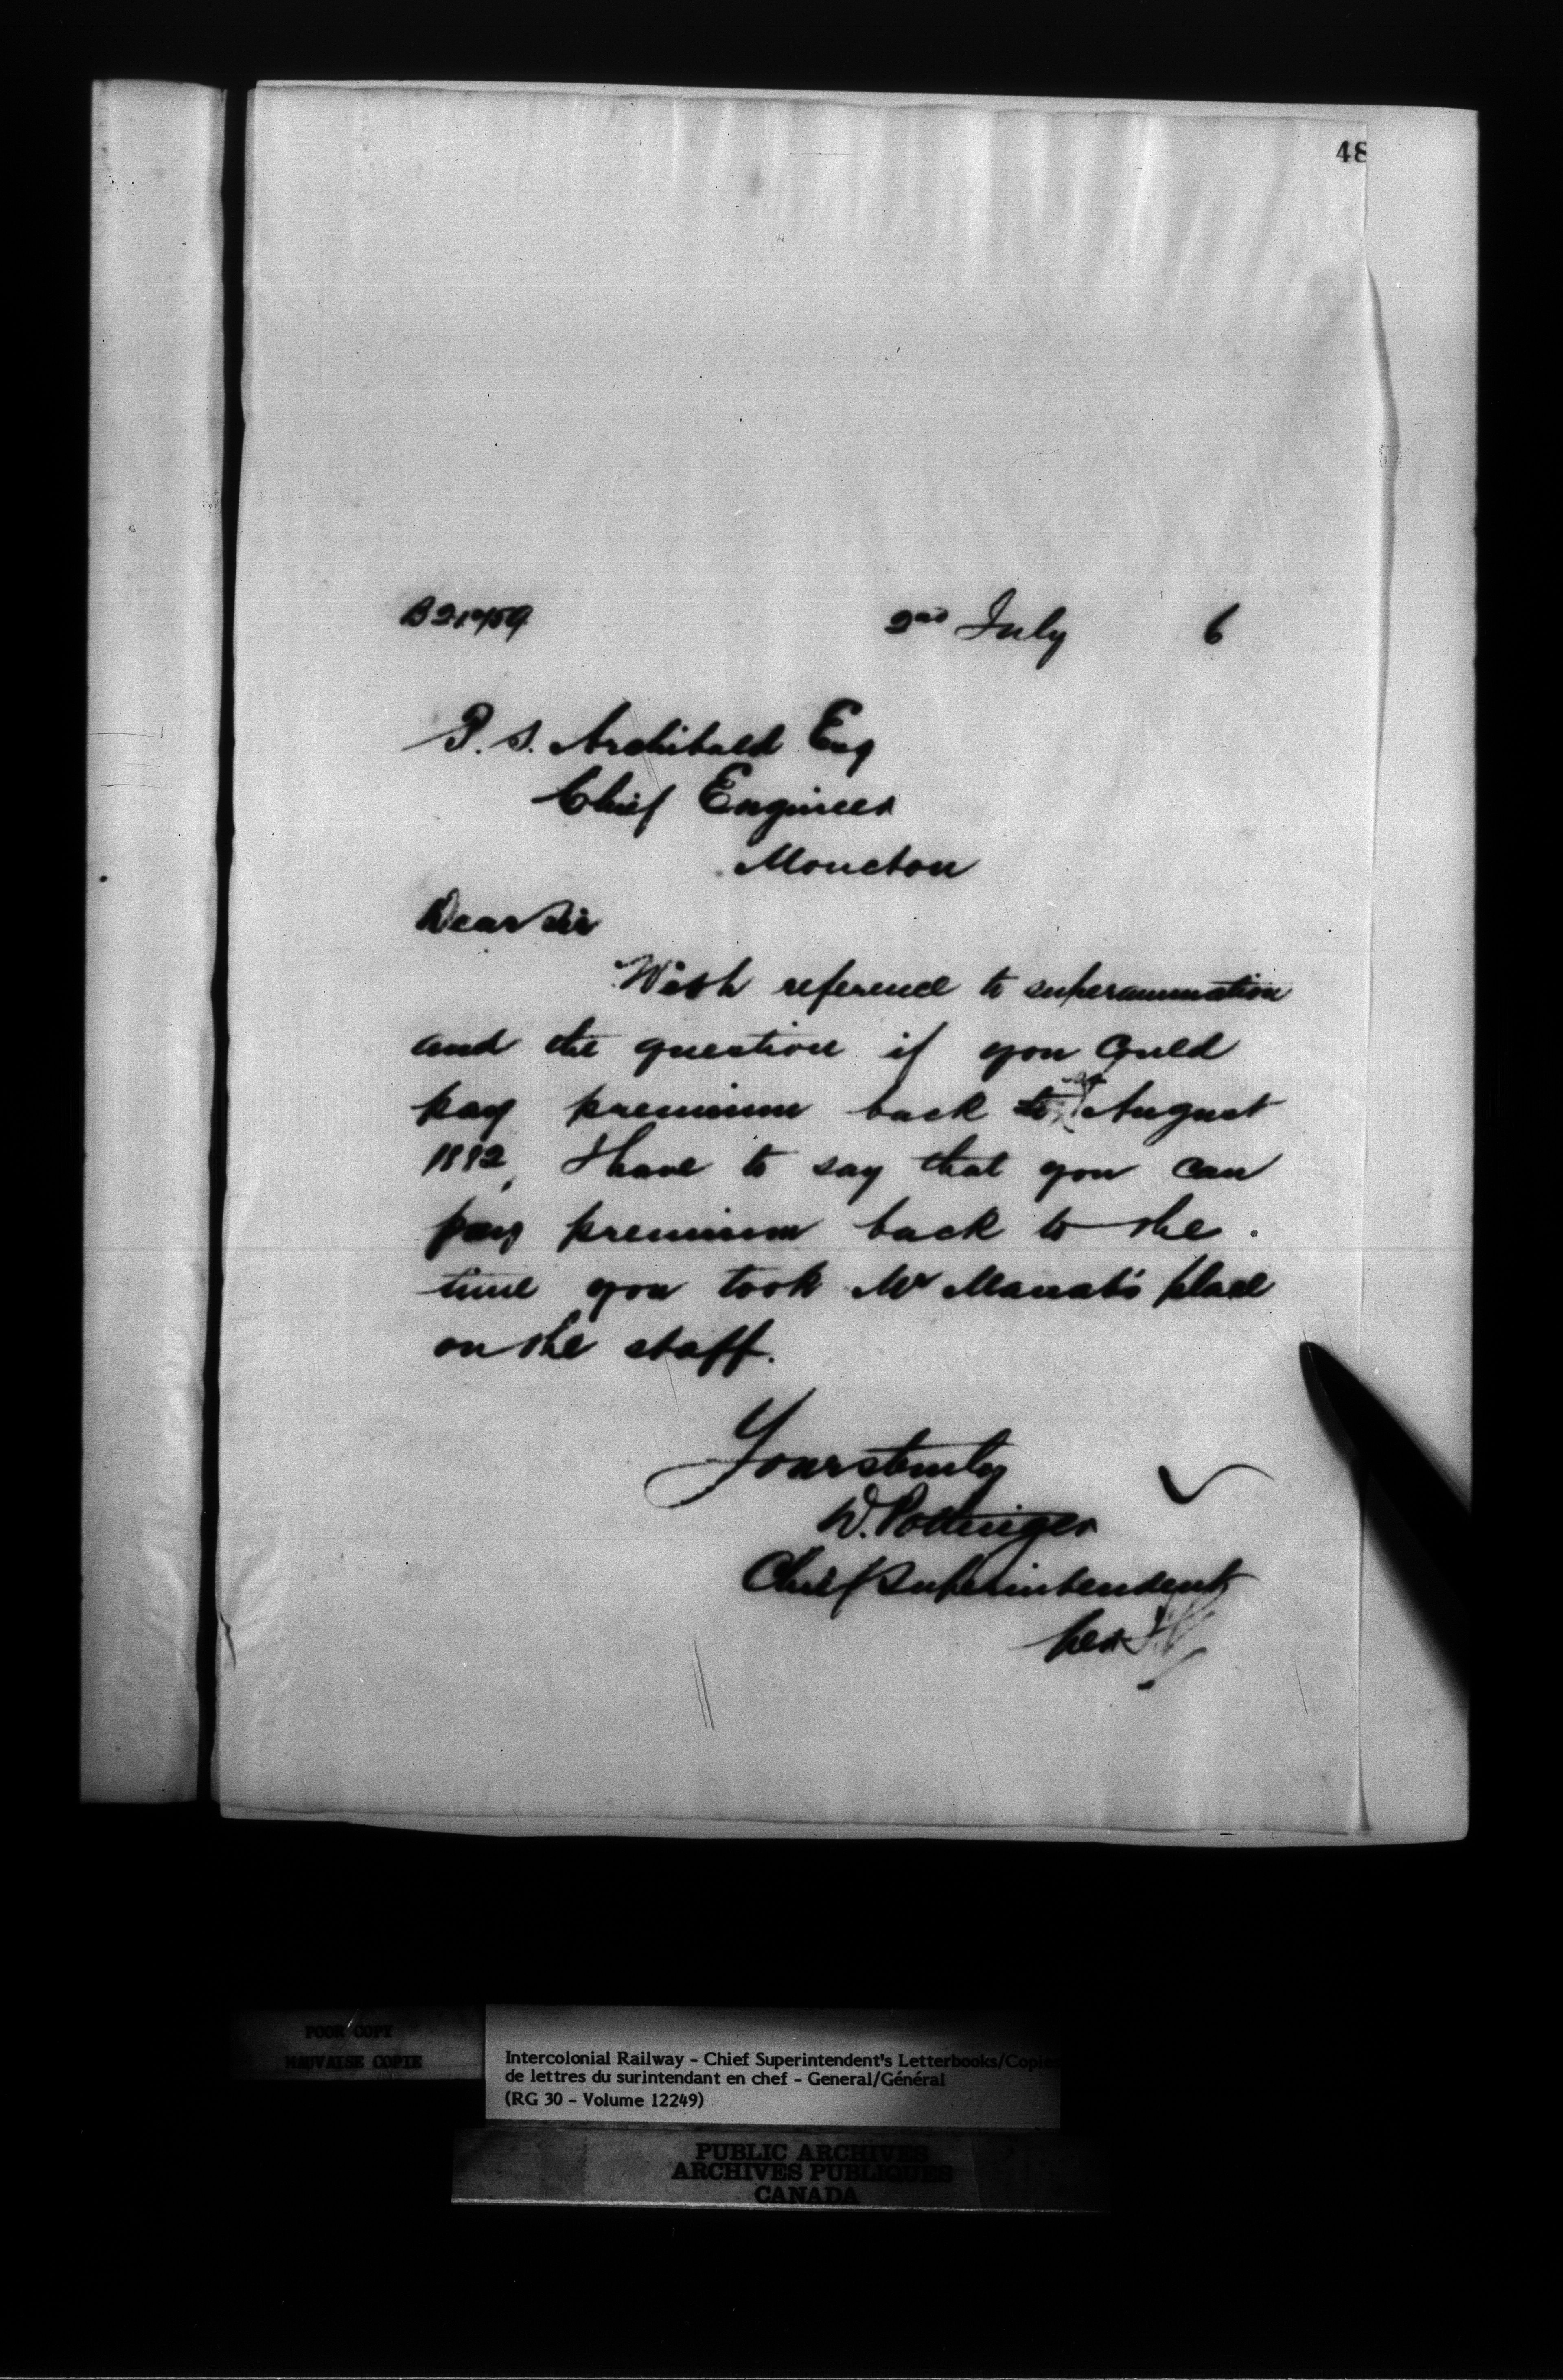 48
2nd July 6
P. S. Archibald Esq
Chief Engineer
Moncton
Dear Sir
With reference to superannuation
and the question if you could
pay premium back to August
1882, I have to say that you can
pay premium back to the
time you took Mr place
on the staff.
Yours truly
D. Pottinger
Chief Superintendent
per
POOR COPY
MAUVAISE COPIE
Intercolonial Railway - Chief Superintendent's Letterbooks/Copies
de lettres du surintendant en chef - General/Général
(RG 30 - Volume 12249)
PUBLIC ARCHIVES
ARCHIVES PUBLIQUES
CANADA